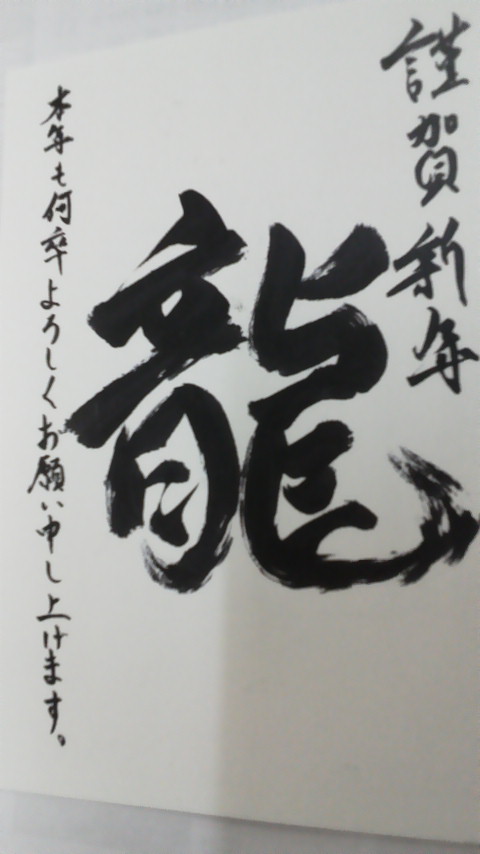 謹賀新年
龍
本年も何卒よろしくお願い申し上げます。